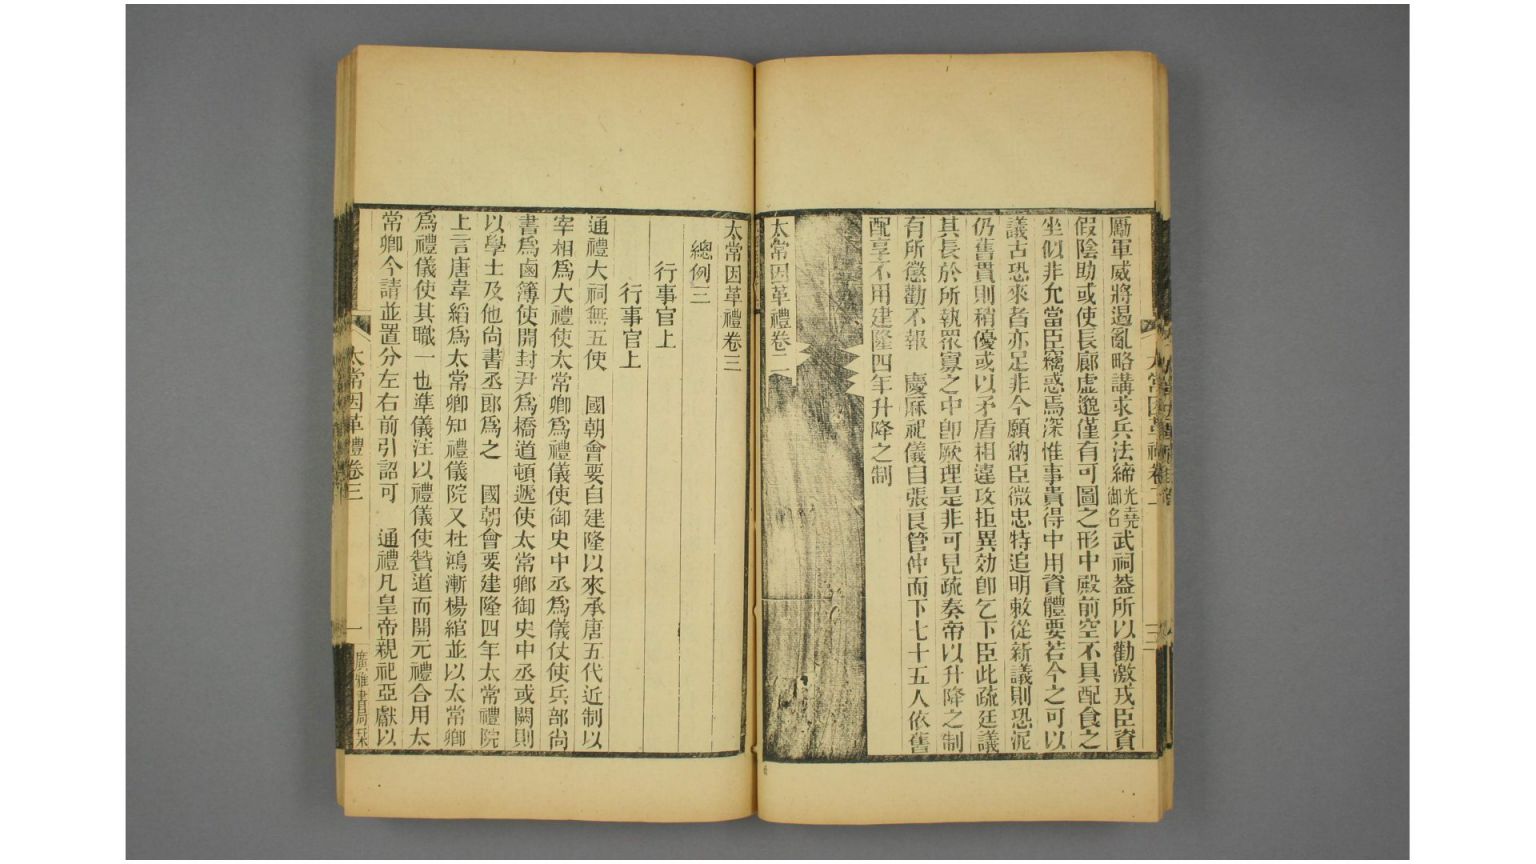 厲軍威將遏亂略講求兵法締光堯御名武祠葢所以勸激戎臣資
假陰助或使長廊虛邈僅有可圖之形中殿前空不具配食之
坐似非允當臣竊惑焉深惟事貴得中用資體要若今之可以
議古恐來者亦足非今願納臣微忠特追明敕從新議則恐泥
仍舊貫則稍優或以矛盾相違攻拒異効卽乞下臣此疏廷議
其長於所執眾寡之中卽厥理是非可見疏奏帝以升降之制
有所懲勸不報　慶厤祀儀自張良管仲而下七十五人依舊
配享不用建隆四年升降之制
太常因革禮卷二
太常因革禮卷三
總例三
行事官上
行事官上
通禮大祠無五使　國朝會要自建隆以來承唐五代近制以
宰相爲大禮使太常卿爲禮儀使御史中丞爲儀仗使兵部尙
書爲鹵簿使開封尹爲橋道頓遞使太常卿御史中丞或闕則
以學士及他尙書丞郞爲之　國朝會要建隆四年太常禮院
上言唐韋縚爲太常卿知禮儀院又杜鴻漸楊綰並以太常卿
爲禮儀使其職一也準儀注以禮儀使贊道而開元禮合用太
常卿今請並置分左右前引詔可　通禮凡皇帝親祀亞獻以
太常因革禮卷三
一
廣雅書局栞